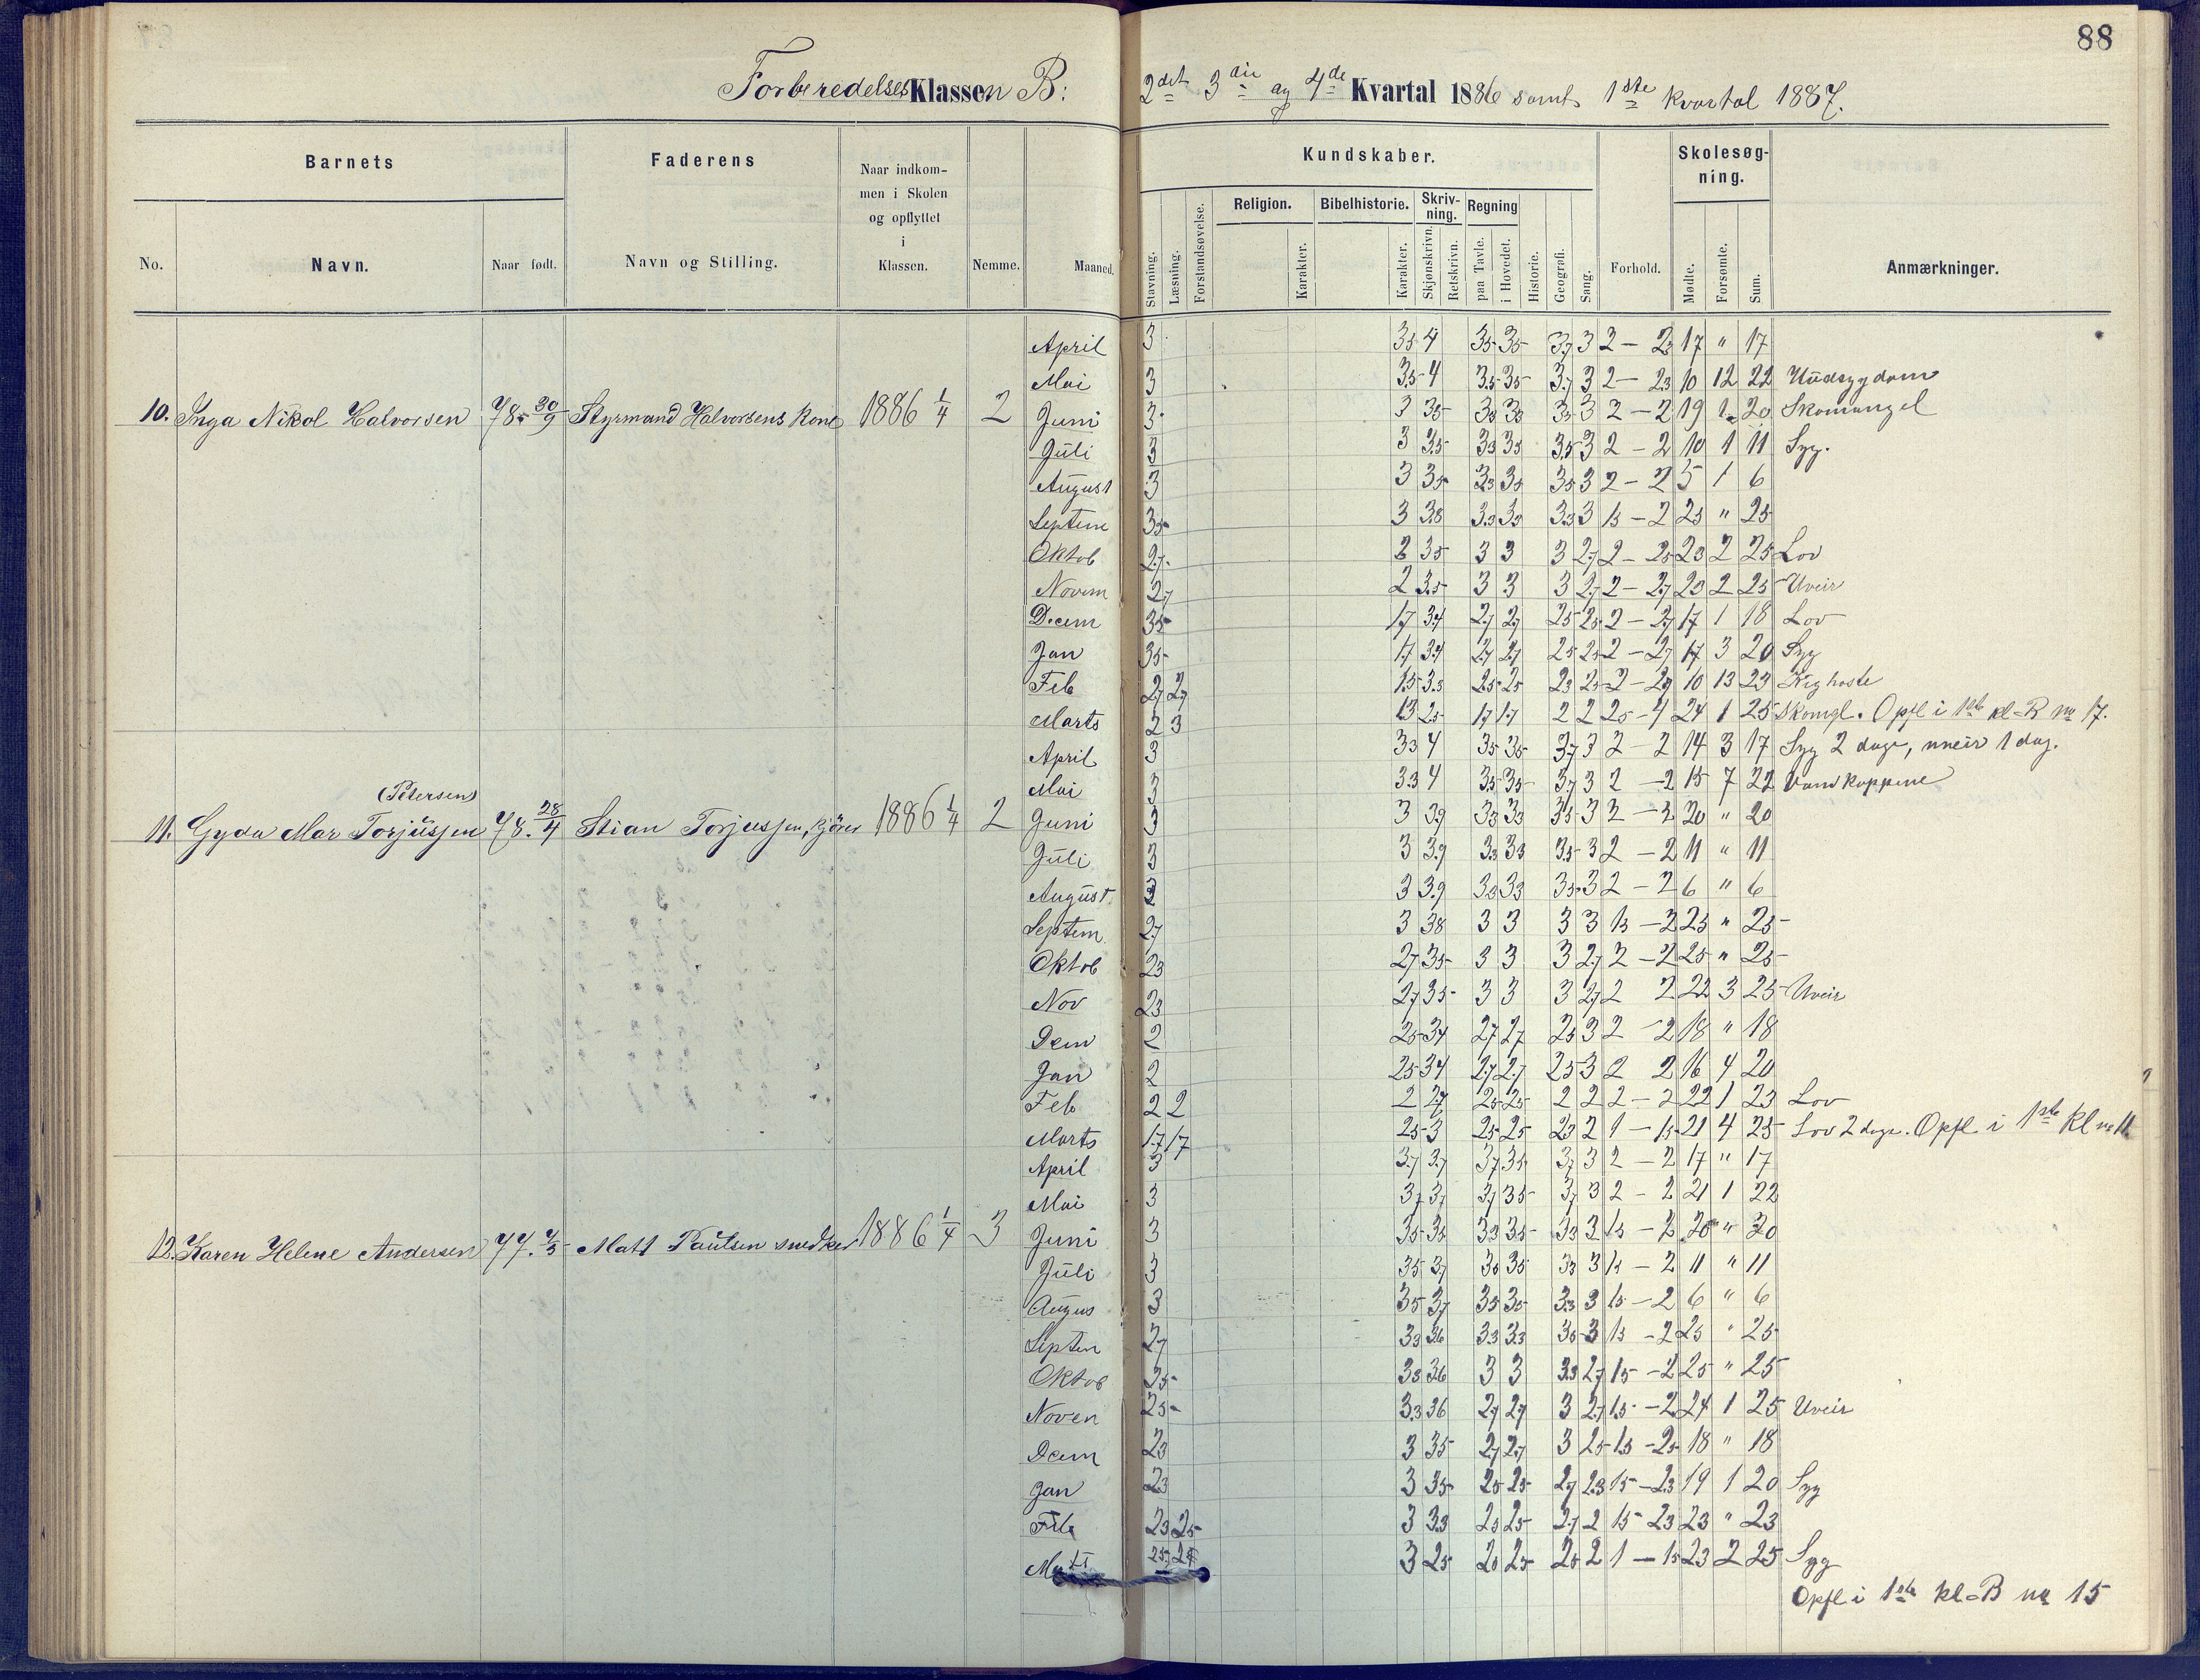 88
Forberedelses Klassen B: 2det 3die og 4de Kvartal 1886 samt 1ste Kvartal 1887.
Barnets Faderens Naar indkommen i Skolen og opflyttet i Klassen. Nemme. Maaned. Kundskaber. Forhold. Skolesøgning. Anmærkninger.
No. Navn. Naar født. Navn og Stilling.
Stavning. Læsning. Forstandsøvelse. Religion. Karakter. Bibelhistorie. Karakter. Skrivning. Skjønskrivn. Retskrivn. Regning paa Tavle. i Hovedet. Historie. Geografi. Sang. Mødte. Forsømte. Sum.
April 3 35 4 35 35 37 3 2 — 23 17 " 17
Mai 3 35 4 35 35 37 3 2 — 23 10 12 22 Hudsygdom
10. Inga Nikol Halvorsen 78. 30/9 Styrmand Halvorsens Kone 1886 1/4 2 Juni 3 3 35 33 33 33 3 2 — 2 19 1 20 Skomangel
Juli 3 3 35 33 33 35 3 2 — 2 10 1 11 Syg.
August 3 3 35 33 33 35 3 2 — 2 5 1 6
Septem 35 3 38 33 33 33 3 15 — 2 25 " 25
Oktob 27 2 35 3 3 3 27 2 — 25 23 2 25 Lov
Novem 27 2 35 3 3 3 27 2 — 27 23 2 25 Uveir
Decem 35 17 34 27 27 25 25 2 — 27 17 1 18 Lov
Jan 35 17 34 27 27 25 25 2 — 27 17 3 20 Syg
Feb 27 27 15 33 25 25 23 25 2 — 27 10 13 23 Kighoste
Marts 2 3 13 25 17 17 2 2 25 — 24 1 25 Skomgl. Opfl i 1ste kl-B no 17.
April 3 33 4 35 35 37 3 2 — 2 14 3 17 Syg 2 dage, uveir 1 dag.
Mai 3 33 4 35 35 37 3 2 — 2 15 7 22 Vandkoppene
(Petersen)
11. Gyda Mar Torjussen 78. 28/4 Stian Torjussen, kjører 1886 1/4 2 Juni 3 3 39 33 33 35 3 2 — 2 20 " 20
Juli 3 3 39 33 33 35 3 2 — 2 11 " 11
August 3 3 39 33 33 35 3 2 — 2 6 " 6
Septem 27 3 38 3 3 3 3 15 — 2 25 " 25
Oktob 23 27 35 3 3 3 27 2 — 2 25 " 25
Nov 23 27 35 3 3 3 27 2 2 22 3 25 Uveir
Dcem 2 25 34 27 27 25 3 2 — 2 18 " 18
Jan 2 25 34 27 27 25 3 2 2 16 4 20
Feb 2 2 2 27 25 25 2 2 2 — 2 22 1 23 Lov
Marts 17 17 25 3 25 25 23 2 1 — 15 21 4 25 Lov 2 dage. Opfl i 1ste Kl no 11.
April 3 37 37 37 35 37 3 2 — 2 17 " 17
Mai 3 37 37 37 35 37 3 2 — 2 21 1 22
12. Karen Helene Andersen 77. 4/5 Matt Paulsen snedker 1886 1/4 3 Juni 3 35 35 33 35 33 3 15 — 2 20 " 20
Juli 3 35 37 35 35 33 3 15 — 2 11 " 11
Augus 3 35 37 35 35 33 3 15 — 2 6 " 6
Septen 27 33 36 33 33 35 3 15 — 2 25 " 25
Oktob 25 33 36 3 3 33 27 15 — 2 25 " 25
Noven 25 33 36 27 27 3 27 15 — 2 24 1 25 Uveir
Dcem 23 3 35 27 27 3 25 15 — 25 18 " 18
Jan 23 3 35 25 25 27 23 15 — 23 19 1 20 Syg
Feb 23 25 3 33 25 25 27 2 15 — 23 23 " 23
Marts 25 24 3 25 25 25 25 2 1 — 15 23 2 25 Syg
Opfl i 1ste kl-B no 15